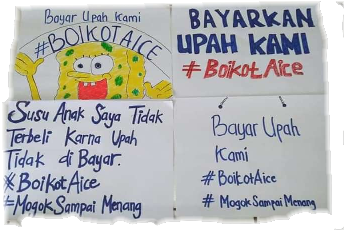 Bayar Upah Kami
#BOIKOTAICE
BAYARKAN
UPAH KAMI
#BoikotAice
Susu Anak Saya Tidak
Terbeli Karna Upah
Tidak di Bayar.
#BoikotAice
#MogokSampai Menang
Bayar Upah
Kami
#BoikotAice
#MogokSampai Menang